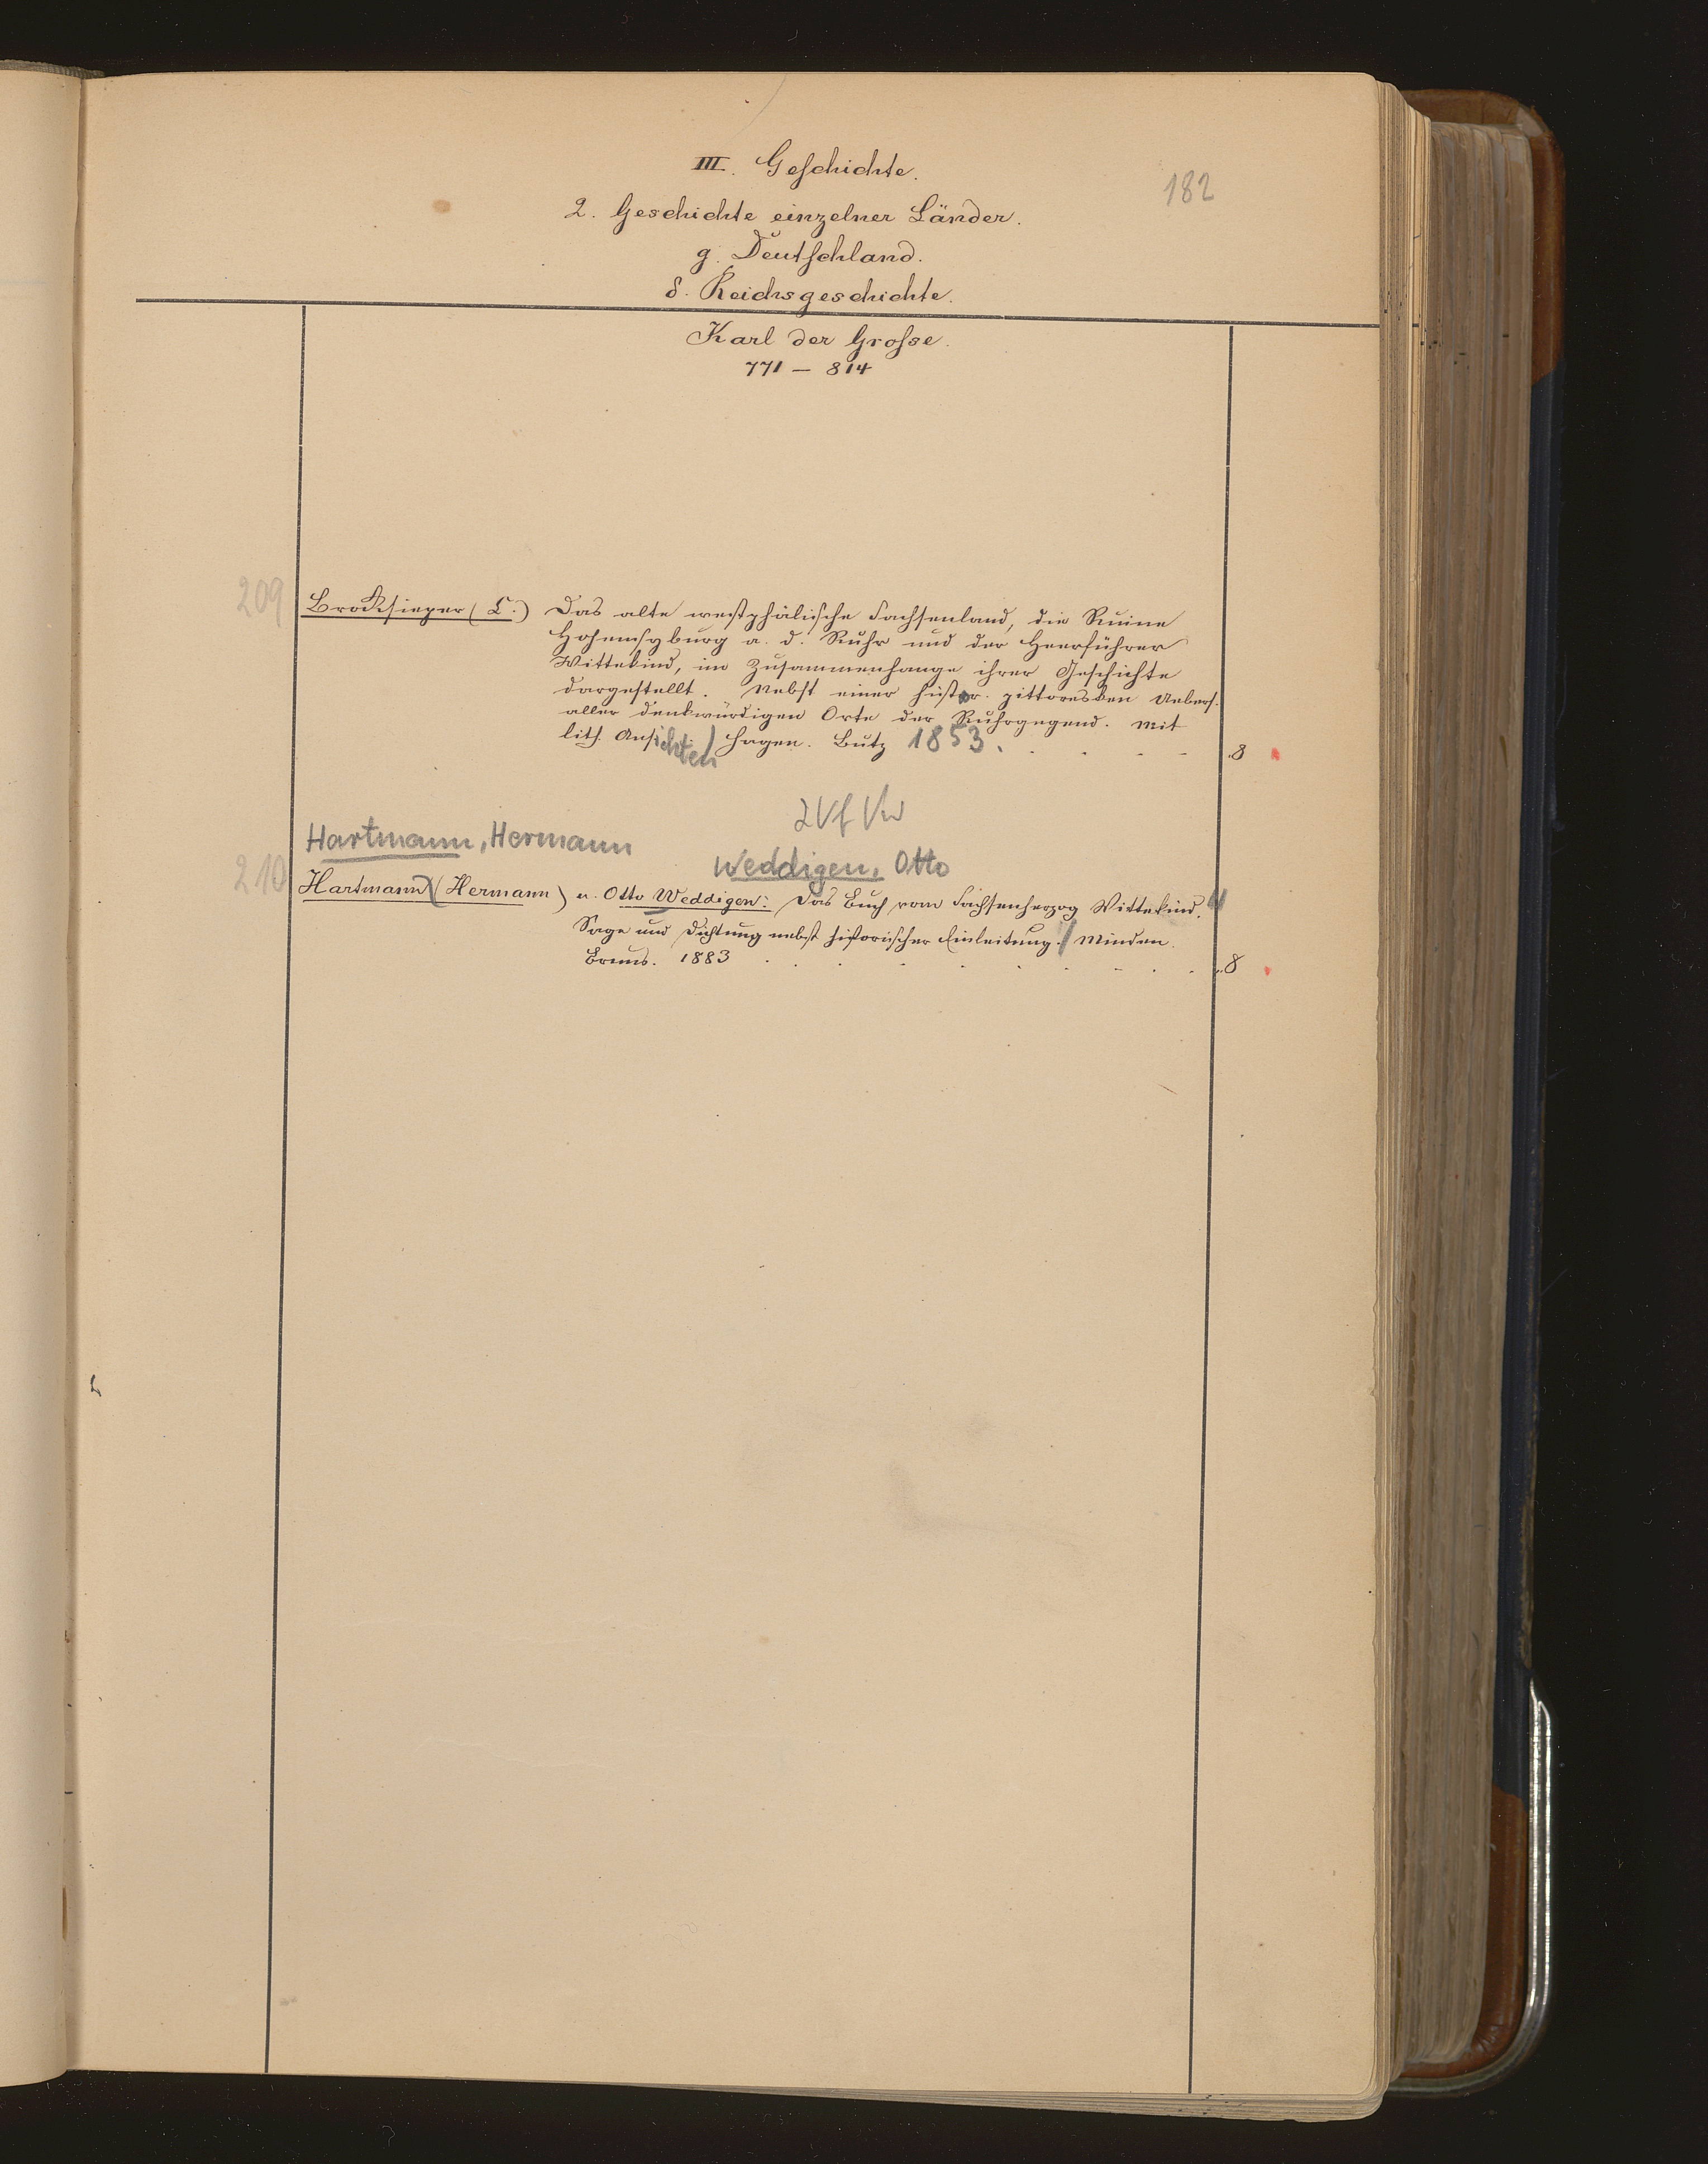 III. Geschichte.
182
2. Geschichte einzelner Länder.
g. Deutschland.
δ. Reichsgeschichte.
Karl der Grosse.
771 – 814
209
Brocksieper (C.) Das alte westphälische Sachsenland, die Ruine
Hohensyburg a. d. Ruhr und der Heerführer
Wittekind, im Zusammenhange ihrer Geschichte
dargestellt. Nebst einer histor. pittoresken Uebers.
aller denkwürdigen Orte der Ruhrgegend. Mit
lith. Ansichten / Hagen. Butz 1853. 8
Hartmann, Hermann
Weddigen, Otto
210
Hartmann (Hermann) u. Otto Weddigen: Das Buch vom Sachsenherzog Wittekind.
Sage und Dichtung nebst historischer Einleitung. / Minden.
Bruns. 1883 8